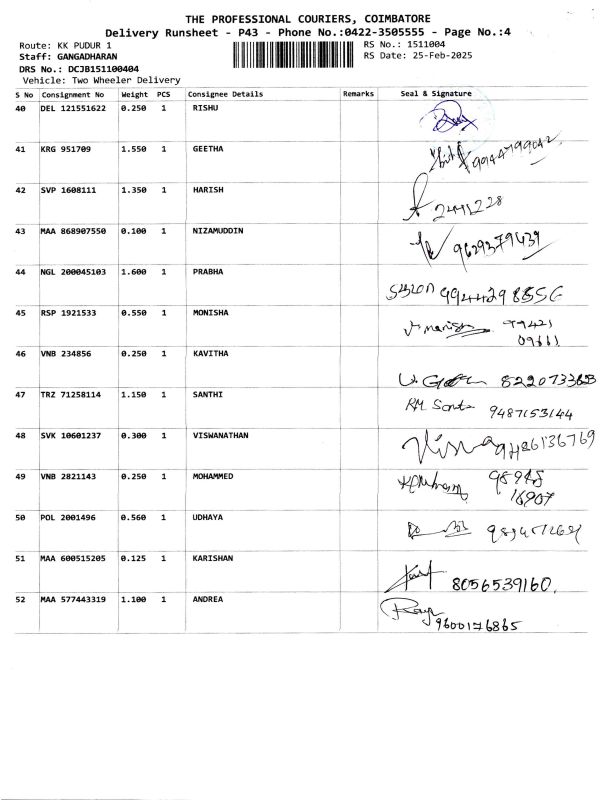 THE PROFESSIONAL COURIERS, COIMBATORE
Delivery Runsheet - P43 - Phone No.:0422-3505555 - Page No.:4
Route: KK PUDUR 1 RS No.: 1511004
Staff: GANGADHARAN RS Date: 25-Feb-2025
DRS No.: DCJB151100404
Vehicle: Two Wheeler Delivery
S No Consignment No Weight PCS Consignee Details Remarks Seal & Signature
40 DEL 121551622 0.250 1 RISHU
41 KRG 951709 1.550 1 GEETHA 9944799042
42 SVP 1608111 1.350 1 HARISH
43 MAA 868907550 0.100 1 NIZAMUDDIN 9629379439
44 NGL 200045103 1.600 1 PRABHA
45 RSP 1921533 0.550 1 MONISHA 99421
09661
46 VNB 234856 0.250 1 KAVITHA
47 TRZ 71258114 1.150 1 SANTHI 9487153144
48 SVK 10601237 0.300 1 VISWANATHAN
49 VNB 2821143 0.250 1 MOHAMMED
16907
50 POL 2001496 0.560 1 UDHAYA
51 MAA 600515205 0.125 1 KARISHAN 8056539160.
52 MAA 577443319 1.100 1 ANDREA
9600176865